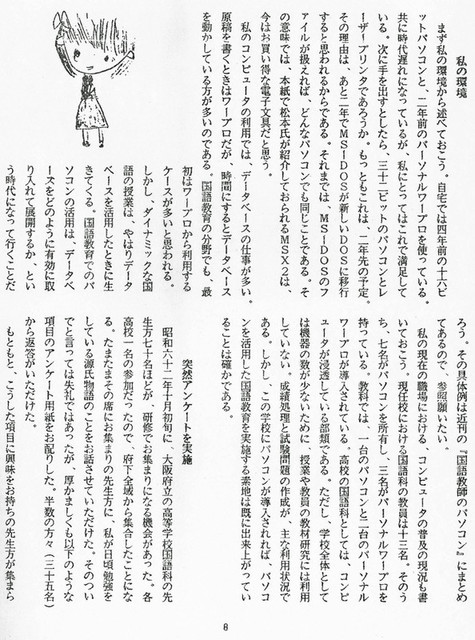 私の環境
まず私の環境から述べておこう。自宅では四年前の十六ビ
ットパソコンと、二年前のパーソナルワープロを使っている。
共に時代遅れになっているが、私にとってはこれで満足して
いる。次に手を出すとしたら、三十二ビットのパソコンとレ
ーザープリンタであろうか。もっともこれは、二年先の予定。
その理由は、あと二年でＭＳ－ＤＯＳが新しいＤＯＳに移行
すると思われるからである。それまでは、ＭＳ－ＤＯＳのフ
ァイルが扱えれば、どんなパソコンでも同じことである。そ
の意味では、本紙で松本氏が紹介しておられるＭＳＸ２は、
今はお買い得な電子文具だと思う。
私のコンピュータの利用では、データベースの仕事が多い。
原稿を書くときはワープロだが、時間にするとデータベース
を動かしている方が多いのである。国語教育の分野でも、最
初はワープロから利用する
ケースが多いと思われる。
しかし、ダイナミックな国
語の授業は、やはりデータ
ベースを活用したときに生
きてくる。国語教育でのパ
ソコンの活用は、データベ
ースをどのように有効に取
り入れて展開するか、とい
う時代になって行くことだ
ろう。その具体例は近刊の『国語教師のパソコン』にまとめ
てあるので、参照願いたい。
私の現在の職場における、コンピュータの普及の現況も書
いておこう。現任校における国語科の教員は十三名。そのう
ち、七名がパソコンを所有し、三名がパーソナルワープロを
持っている。教科では、一台のパソコンと二台のパーソナル
ワープロが導入されている。高校の国語科としては、コンピ
ュータが浸透している部類である。ただし、学校全体として
は機器の数が少ないために、授業や教員の教材研究には利用
していない。成績処理と試験問題の作成が、主な利用状況で
ある。しかし、この学校にパソコンが導入されれば、パソコ
ンを活用した国語教育を実施する素地は既に出来上がってい
ることは確かである。
突然アンケートを実施
昭和六十二年十月初旬に、大阪府立の高等学校国語科の先
生方七十名ほどが、研修でお集まりになる機会があった。各
高校一名の参加だったので、府下全域から集合したことにな
る。たまたまその席にお集まりの先生方に、私が日頃勉強を
している源氏物語のことをお話させていただけた。そのつい
でと言っては失礼ではあったが、厚かましくも以下のような
項目のアンケート用紙をお配りした。半数の方々（三十五名）
から返答がいただけた。
もともと、こうした項目に興味をお持ちの先生方が集まら
8